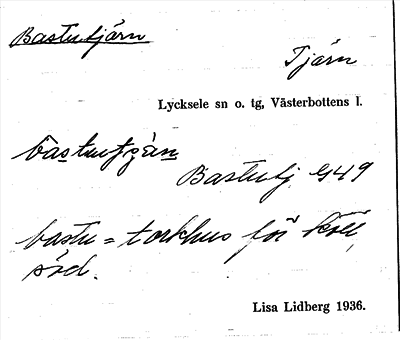 Bastutjärn
Tjärn
Lycksele sn o. tg, Västerbottens l.
Bastutj. G49
bastu = torkhus för
säd.
Lisa Lidberg 1936.